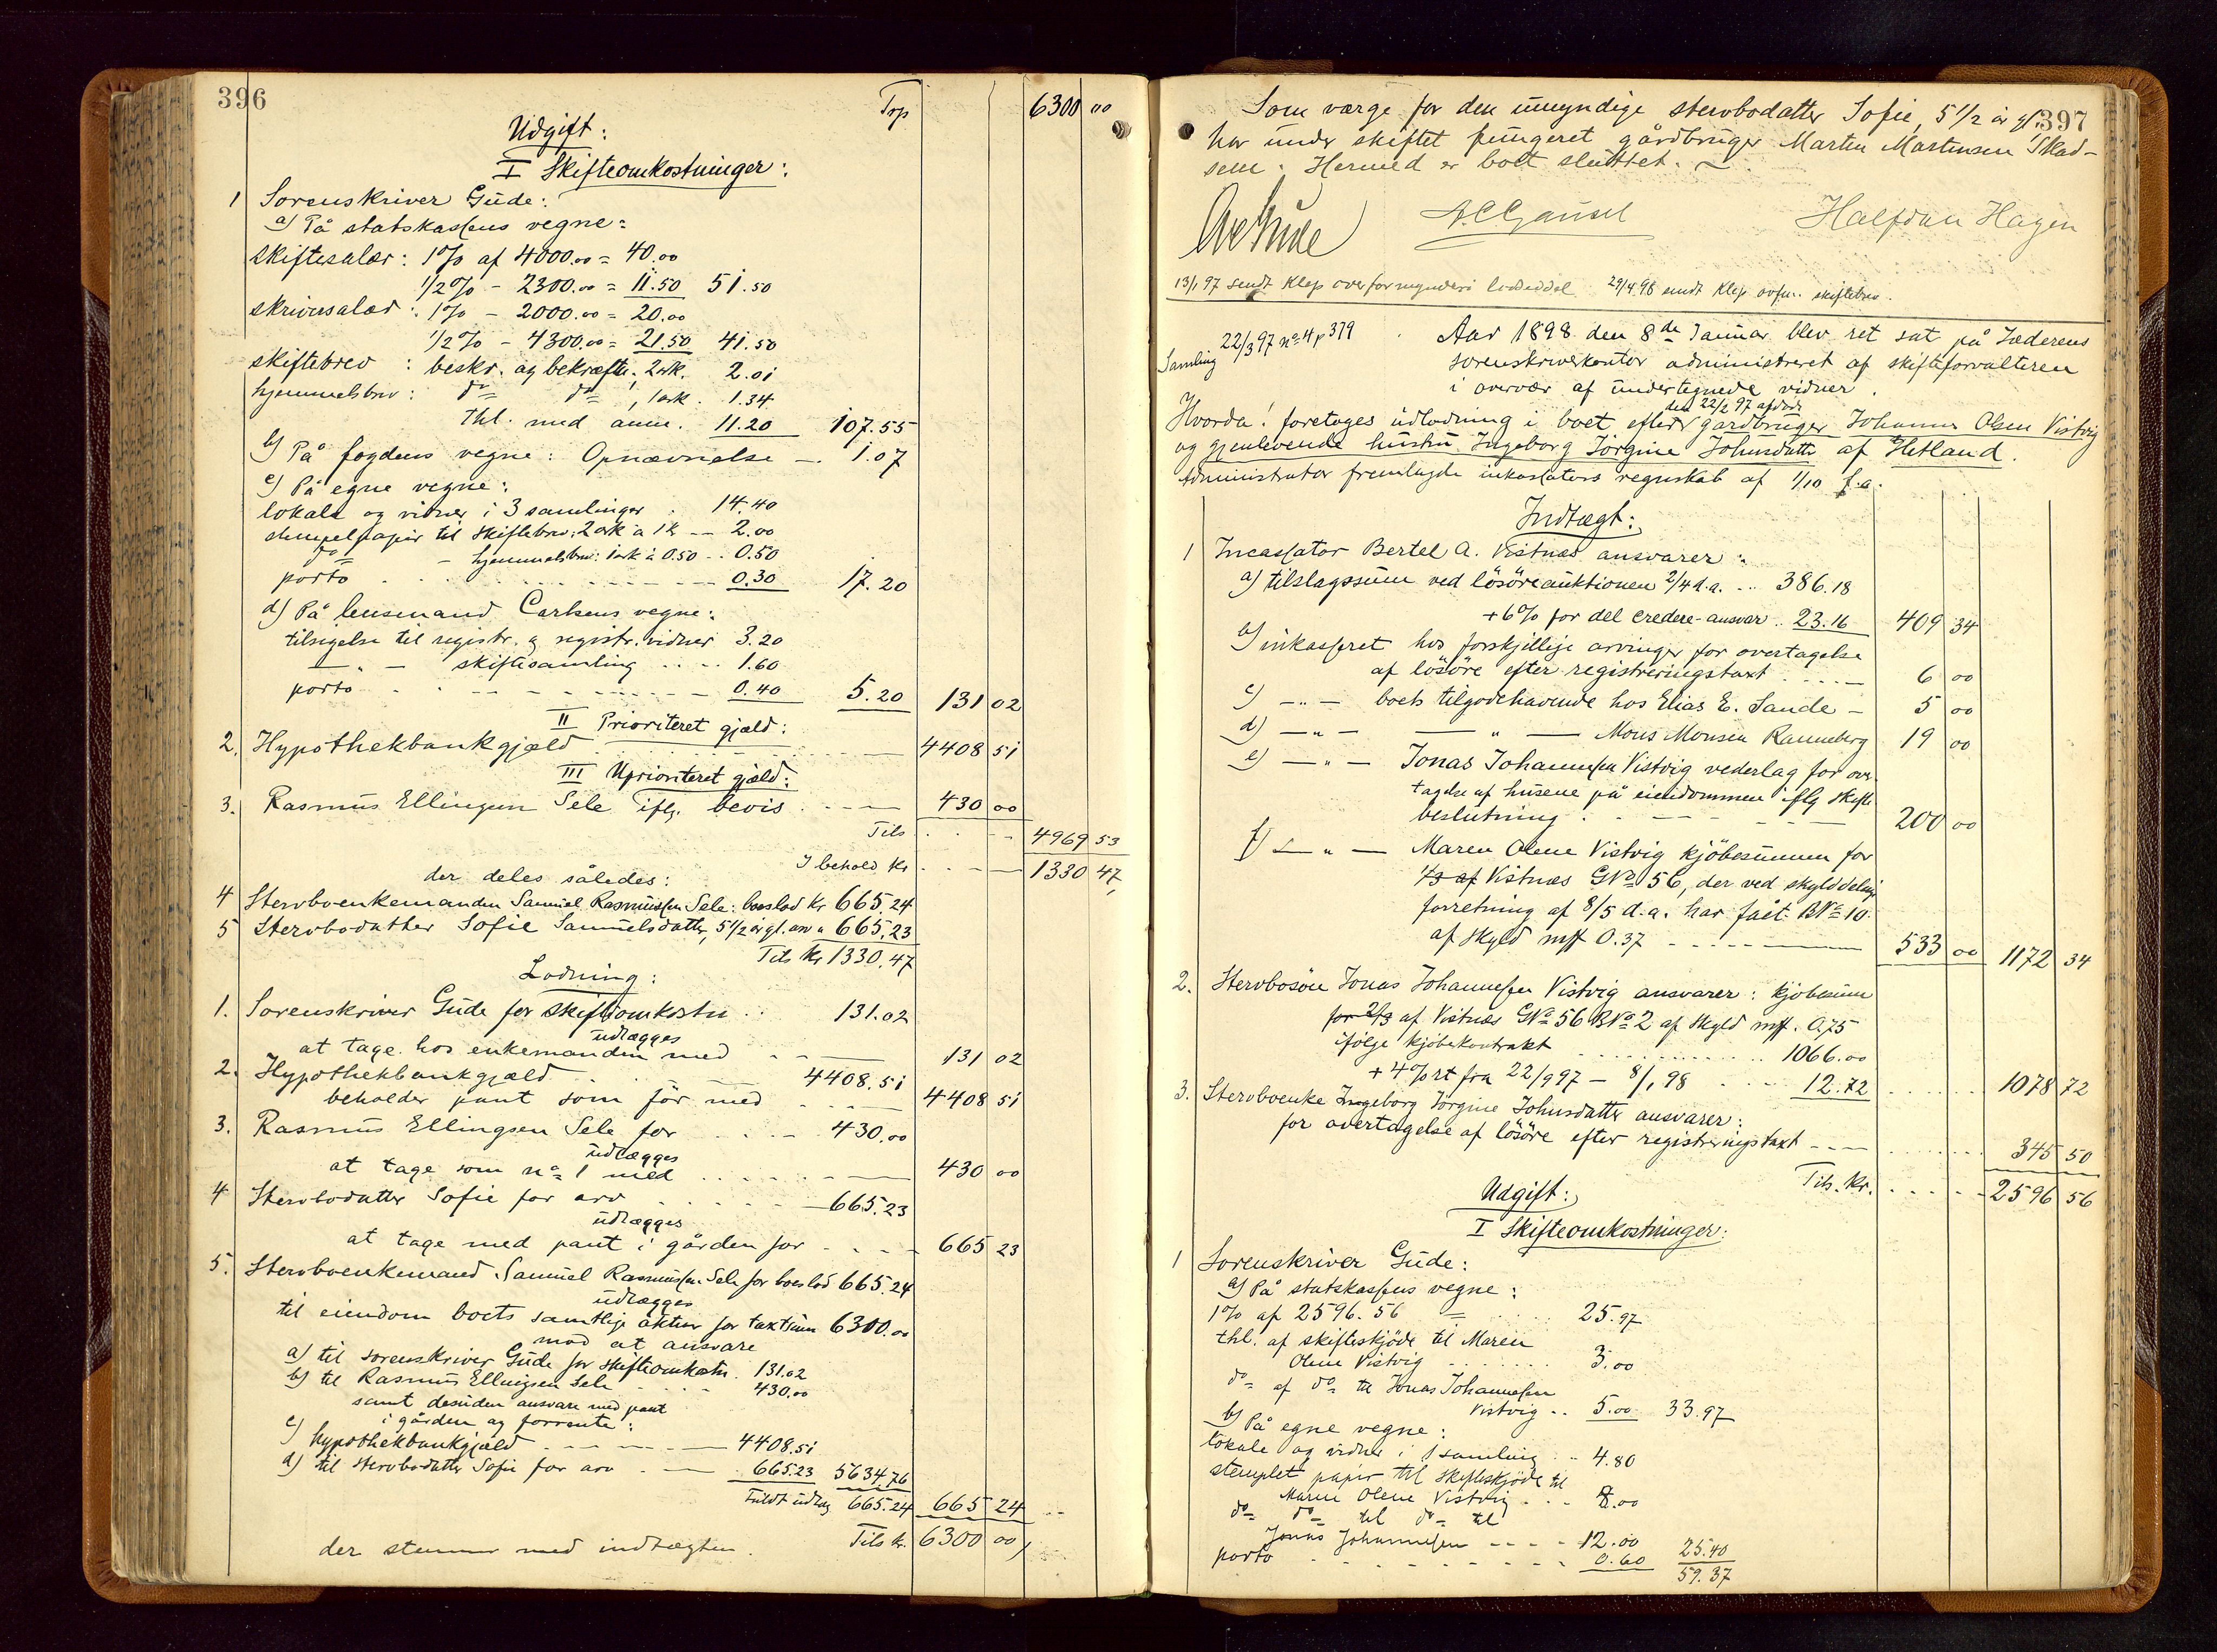 396
Trp 6300 00
Udgift:
I Skifteomkostninger:
1 Sorenskriver Gude:
a) På statskassens vegne:
skiftesalær: 1% af 4000.00 = 40.00
1/2% - 2300.00 = 11.50 51.50
skriversalær: 1% - 2000.00 = 20.00
1/2% - 4300.00 = 21.50 41.50
skiftebrev: beskr. og bekræft. 2 ark. 2.01
hjemmelsbrev: do do, 1 ark. 1.34
Thl. med anm. 11.20 107.55
b) På fogdens vegne: Opnævnelse — 1.07
c) På egne vegne:
lokale og vidner i 3 samlinger . 14.40
stempelpapir til skiftebrev: 2 ark a 1 k — 2.00
do - hjemmelsbrev: 1 ark à 0.50 .. 0.50
porto . . . 0.30 17.20
d) På lensmand Carlsens vegne:
tilsigelse til registr. og registr. vidner 3.20
— " — skiftesamling .... 1.60
porto . . . 0.40 5.20 131 02
II Prioriteret gjæld:
2. Hypothekbankgjæld — 4408 51
III Uprioriteret gjæld:
3. Rasmus Ellingsen Sele iflg. bevis . — 430 00
Tils . . — 4969 53
I behold Kr . — 1330 47
der deles således:
4 Stervboenkemanden Samuel Rasmussen Sele: boeslod Kr 665.24
5 Stervbodatter Sofie Samuelsdatter, 5 1/2 år gl. arv " 665.23
Tils Kr 1330.47
Lodning:
1. Sorenskriver Gude for skifteomkostn .. 131.02
udlægges
at tage hos enkemanden med — 131 02
2. Hypothekbankgjæld . . — 4408.51
beholder pant som før med — 4408 51
3. Rasmus Ellingsen Sele for . . — 430.00
udlægges
at tage som no 1 med . . . — 430 00
4 Stervbodatter Sofie for arv . . — 665.23
udlægges
at tage med pant i gården for . . - 665 23
5. Stervboenkemand Samuel Rasmussen Sele for boeslod 665.24
udlægges
til eiendom boets samtlige aktiver for taxtsum 6300.00
mod at ansvare
a) til sorenskriver Gude for skifteomkostn. 131.02
b) til Rasmus Ellingsen Sele . . 430.00
samt desuden ansvare med pant
i gården og forrente:
c) hypothekbankgjæld . — 4408.51
d) til stervbodatter Sofie for arv . — 665.23 5634.76
Fuldt udlæg 665.24 665 24
der stemmer med indtægten. Tils kr. 6300 00
397
Som værge for den umyndige stervbodatter Sofie, 5 1/2 år gl.
har under skiftet fungeret gårdbruger Marten Martensen Skad-
sem. Hermed er boet sluttet.
Ove Gude A.C. Gausel Halfdan Hagen
13/1 97 sendt Klep overformynderi lodseddel 29/4 98 sendt Klep ovfm. skiftebrev.
Samling 22/3 97 no 4 p 379
Aar 1898 den 8de Januar blev ret sat på Jæderens
sorenskriverkontor administreret af skifteforvalteren
i overvær af undertegnede vidner.
Hvorda! foretoges udlodning i boet efter den 22/2 97 afdøde gardbruger Johannes Olsen Vistvig
og gjenlevende hustru Ingeborg Jørgine Johnsdatter af Hetland.
Administrator fremlagde inkassators regnskab af 1/10 f.a.
Indtægt:
1 Incassator Bertel A. Vistnæs ansvarer:
a) tilslagssum ved løsøreauktionen 2/4 d.a. .. 386.18
+ 6% for del credere-ansvar .. 23.16 409 34
b) inkasseret hos forskjellige arvinger for overtagelse
af løsøre efter registreringstaxt . . . — 6 00
c) — " — boets tilgodehavende hos Elias E. Sande — 5 00
d) — " — — " — Mons Monsen Ranneberg 19 00
e) — " — Jonas Johannessen Vistvig vederlag for over-
tagelse af husene på eiendommen iflg skifte
beslutning . — 200 00
f) — " — Maren Olene Vistvig kjøbesummen for
1/3 af Vistnæs GNo 56, der ved skylddelings
forretning af 8/5 d.a. har fået BNo 10
af skyld mk 0.37 — 533 00 1172 34
2. Stervbosøn Jonas Johannessen Vistvig ansvarer: kjøbesum
for 2/3 af Vistnæs GNo 56 BNo 2 af skyld mk. 0,75
ifølge kjøbekontrakt . . . 1066.00
+ 4% rt fra 22/9 97 — 8/1 98 . — 12.72 1078 72
3. Stervboenke Ingeborg Jørgine Johnsdatter ansvarer:
for overtagelse af løsøre efter registreringstaxt — 345 50
Tils. Kr. 2596 56
Udgift:
I Skifteomkostninger:
1 Sorenskriver Gude:
a) På statskassens vegne:
1% af 2596.56 = . . . 25.97
thl. af skifteskjøde til Maren
Olene Vistvig . . . 3.00
do af do til Jonas Johannessen
Vistvig .. 5.00 33.97
b) På egne vegne:
lokale og vidner i 1 samling .. 4.80
stemplet papir til skifteskjøde til
Maren Olene Vistvig . . . 8.00
do do til do til
Jonas Johannessen — 12.00
porto . . . 0.60 25.40
59.37